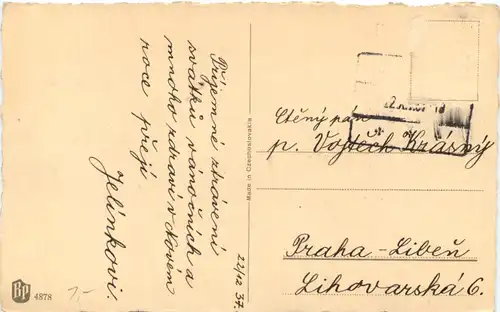 Příjemné ztrávení
svátků vánočních a
mnoho zdraví v Novém
roce přejí
Jelínkovi.
22/12 37.
Made in Czechoslovakia
Ctěný pán
p. Vojtěch Krásný
Praha-Libeň
Lihovarská 6.
BP
4878
1,-